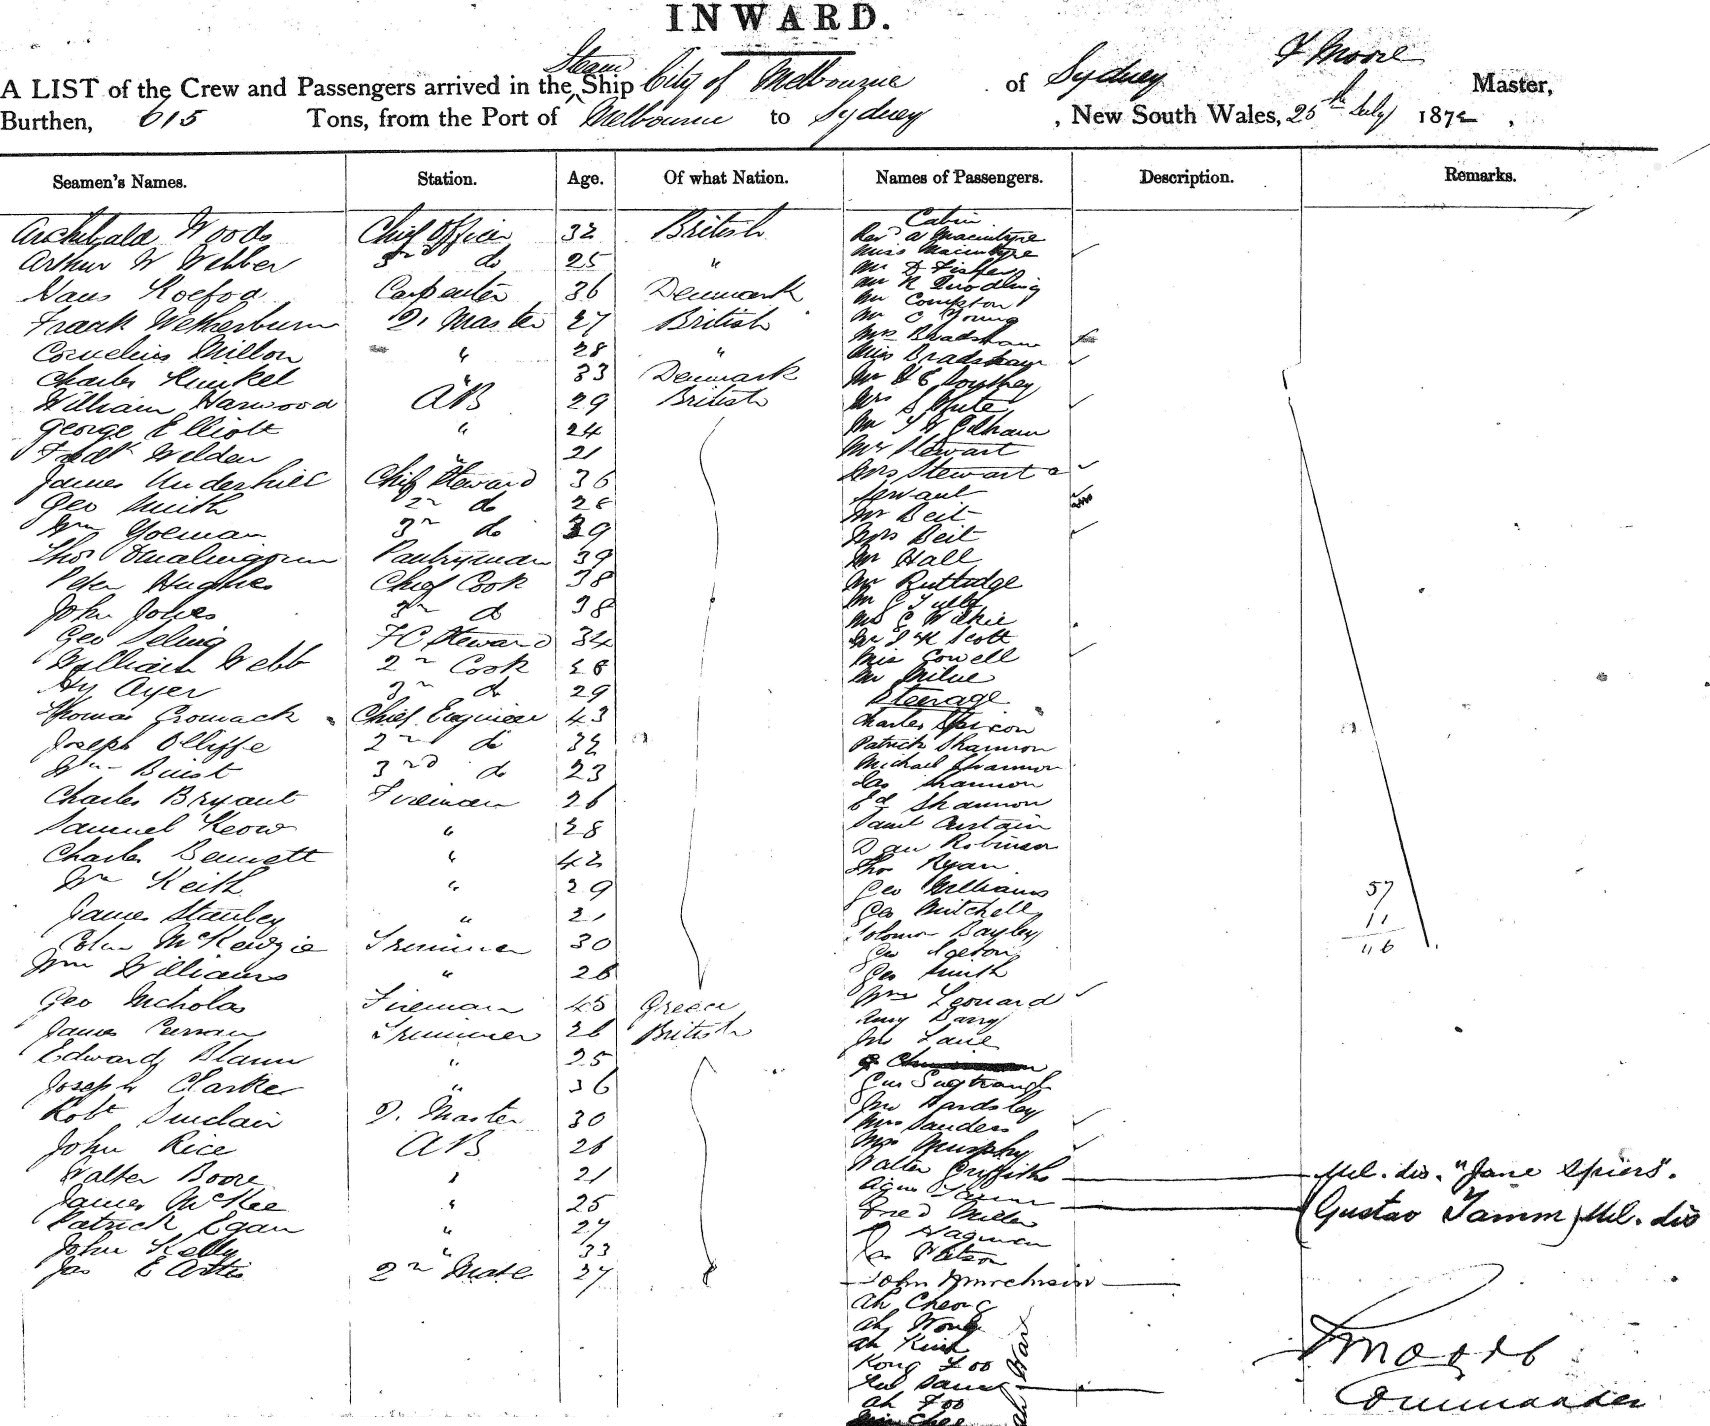 INWARD.
A LIST of the Crew and Passengers arrived in the Steam Ship City of Melbourne of Sydney F Moore Master,
Burthen, 615 Tons, from the Port of Melbourne to Sydney , New South Wales, 25th July 1872 ,
Seamen's Names. Station. Age. Of what Nation. Names of Passengers. Description. Remarks.
Archibald Woods Chief Officer 32 British
Arthur W Webber do 25 "
Hans Koefod Carpenter 36 Denmark
Frank Wetherburn Q. Master 27 British
Cornelius Dillon " 28 "
Charles Kunkel " 33 Denmark
William Harwood AB 29 British
George Elliott " 24
Fredk Welden " 21
James Underhill Chief Steward 36
Geo Smith 2nd do
Wm Yoeman 3rd do 39
Thos Pantryman 39
Peter Hughes Chief Cook 38
John Jones do 38
Geo FC Steward 34
William Webb 2nd Cook 28
Hy Ayer 3rd do 29
Thomas Cromack Chief Engineer 43
Joseph Olliffe 2nd do 32
Wm Buist 3rd do 23
Charles Bryant Fireman 26
Samuel Keow " 28
Charles Bennett " 42
Wm Keith " 29
James Stanley " 21
Colin McKenzie Trimmer 30
Wm Williams " 26
Geo Nicholas Fireman 45 Greece
James Trimmer 26 British
Edward Blann " 25
Joseph Clarke " 36
Robt Sinclair Q. Master 30
John Rice AB 26
Walter Boore " 21
James McKee " 25
Patrick Egan " 27
John Kelly " 33
Jas E 2nd Mate 27
Cabin
Revd A Macintyre
Miss Macintyre
Mr D Fisher
Mr R
Mr Compton
Mr C Young
Mrs Bradshaw
Miss Bradshaw
Mr H E Southey
Mrs S White
Mr T W
Mr Stewart
Mrs Stewart &
Servant
Mr Beit
Mrs Beit
Mr Hall
Mr Rutledge
Mr G Tully
Mr E Wilkie
Mr J H Scott
Miss Cowell
Mr Milne
Steerage
Charles
Patrick Shannon
Michael Shannon
Jas Shannon
Ed Shannon
Saml
Dan Robinson
Thos Ryan
Geo Williams
Geo Mitchell
Solomon Bayley
Geo
Geo Smith
Mrs Leonard
Amy Barry
Jno Lane
Jno Bardsley
Mrs Sanders
Mrs Murphy
Walter Griffiths Mel. dis. "Jane Spiers".
Fred Miller (Gustav Tamm) Mel. dis
Hagman
Jas Watson
John Murchison
Ah Cheong
Ah Wong
Ah Kink
Kong Foo
Ah Foo
Chee
57
11
46
F Moore
Commander